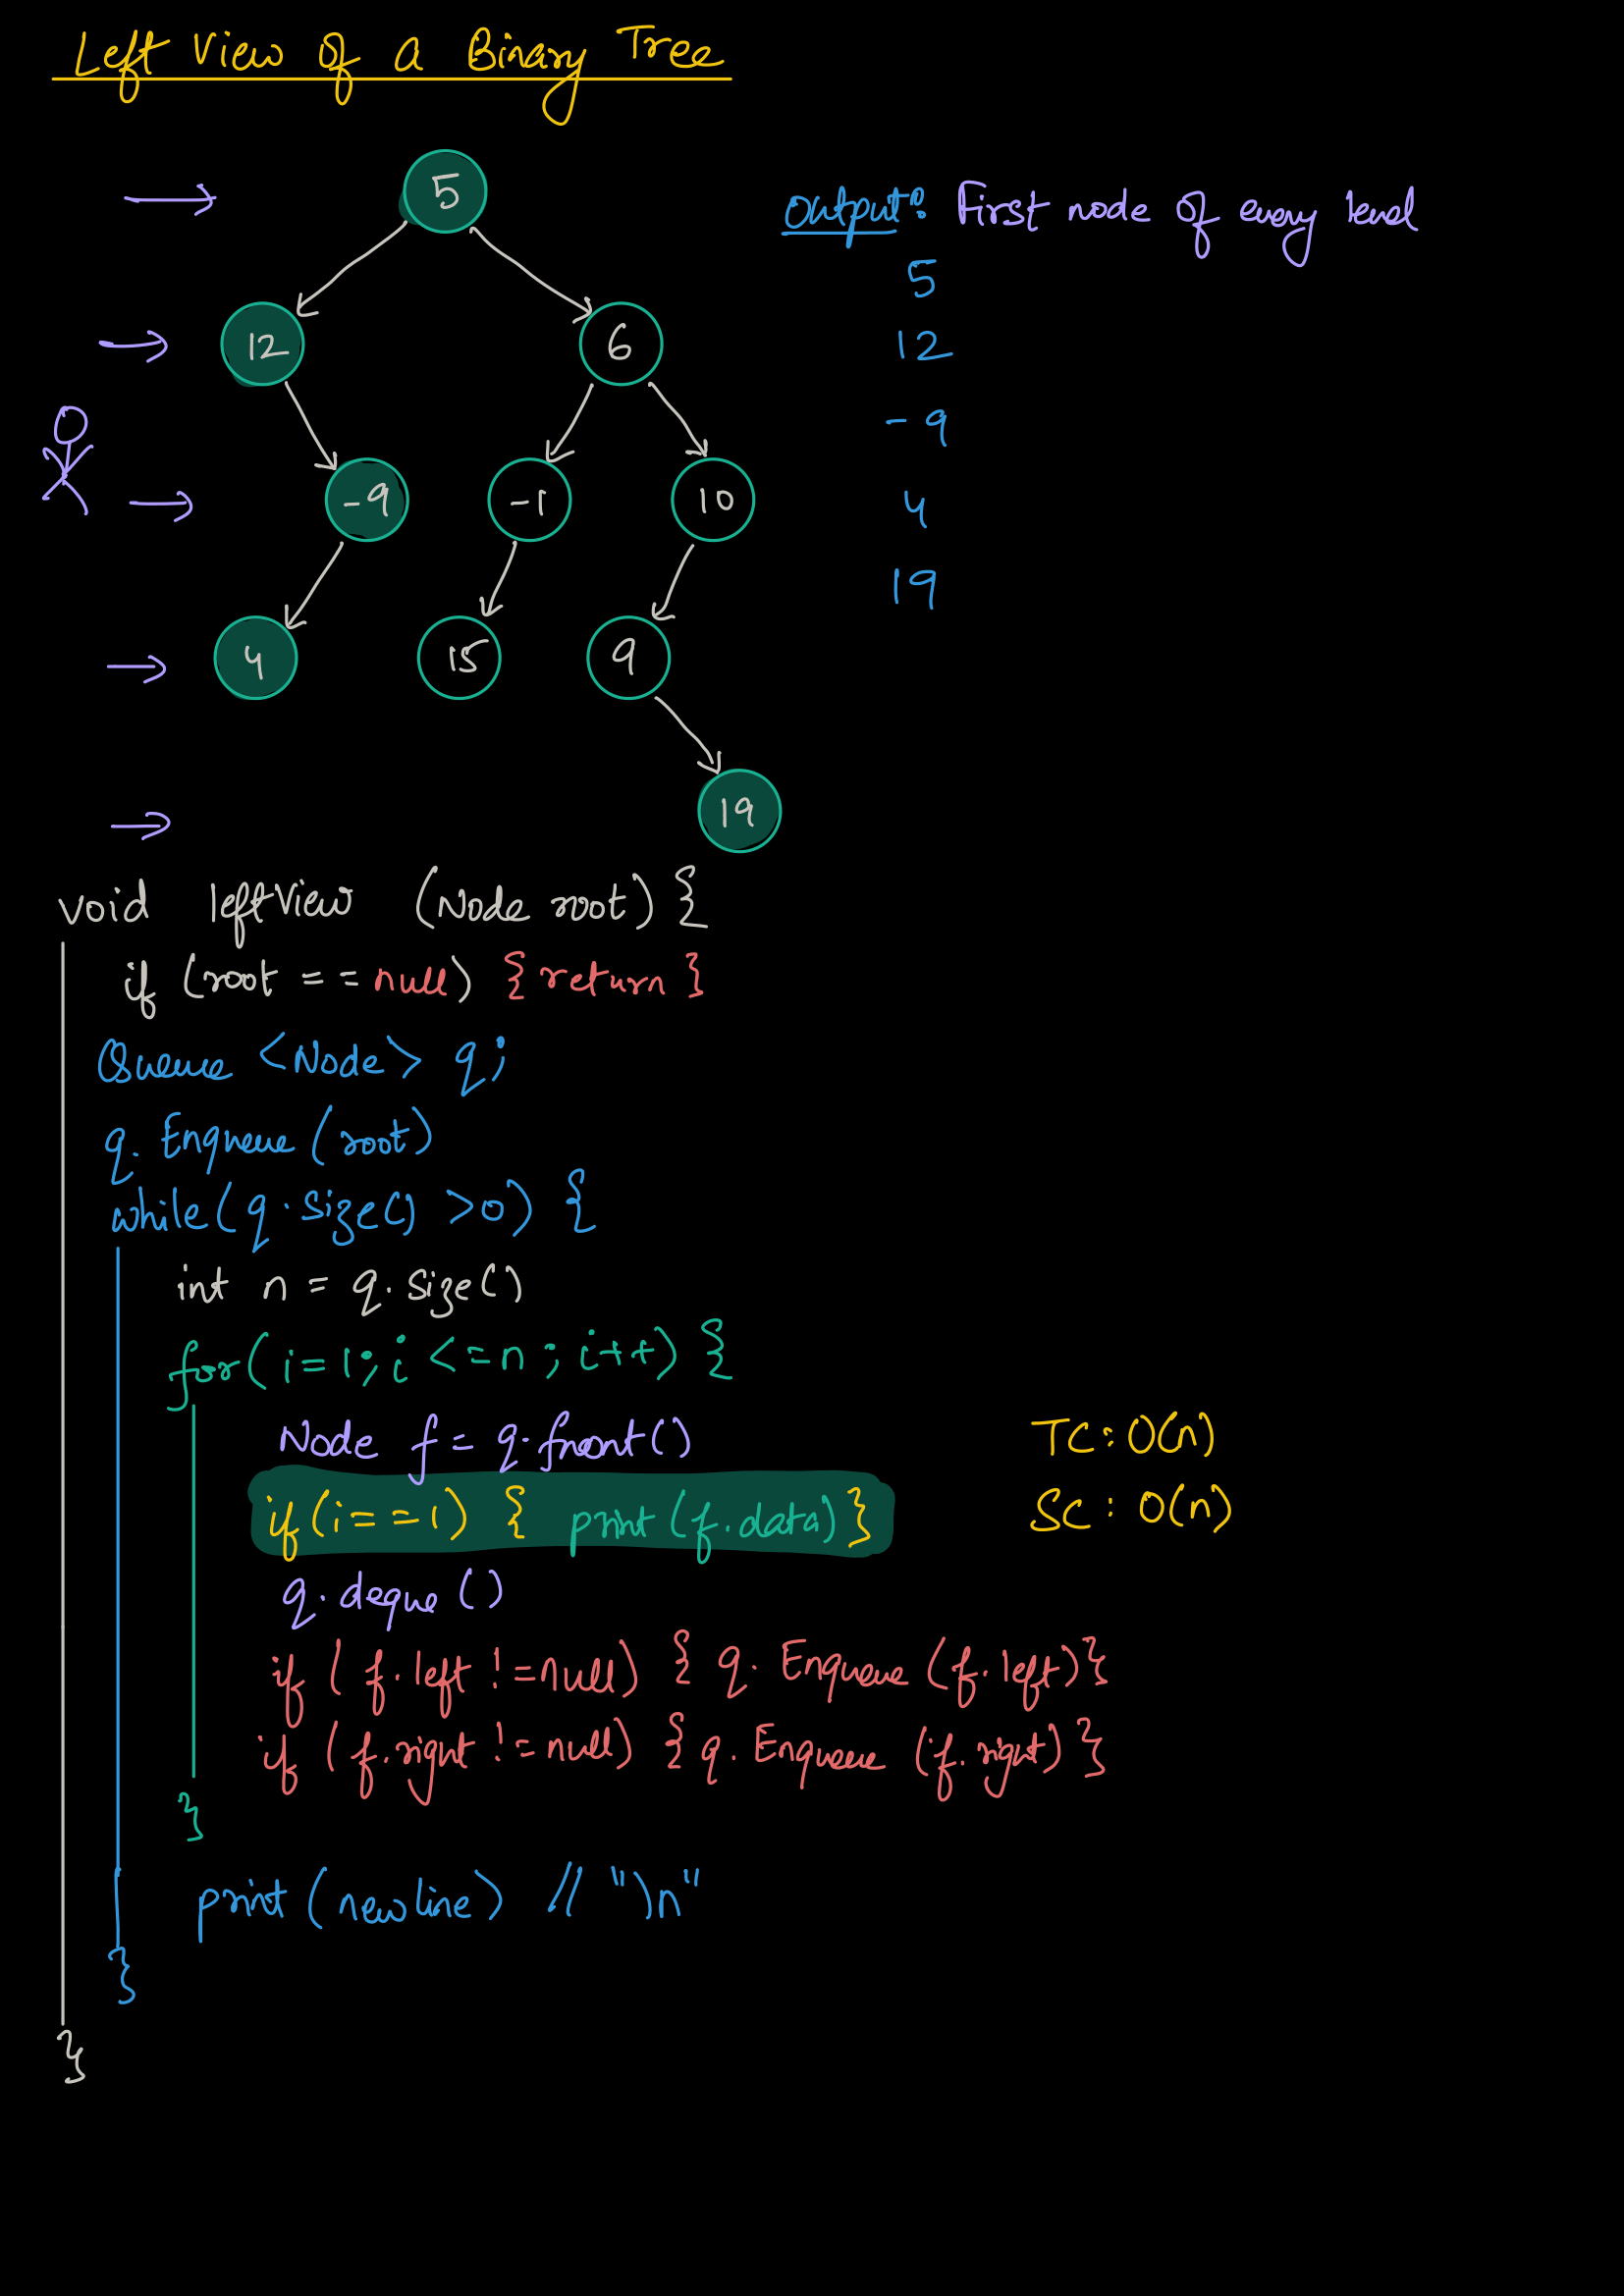 Left View of a Binary Tree
5
Output: First node of every level
5
12
6
12
-9
-1
10
-9
4
4
15
9
19
19
void leftView (Node root) {
if (root == null) { return }
Queue <Node> q;
q. Enqueue (root)
while( q.size() >0) {
int n = q. size()
for( i=1; i <=n ; i++) {
Node f= q.front()
TC: O(n)
if(i==1) { print (f.data) }
SC: O(n)
q.deque ()
if ( f.left !=null) { q. Enqueue (f.left)}
if ( f.right != null) { q. Enqueue (f.right) }
}
print (new line) // "\n"
}
}